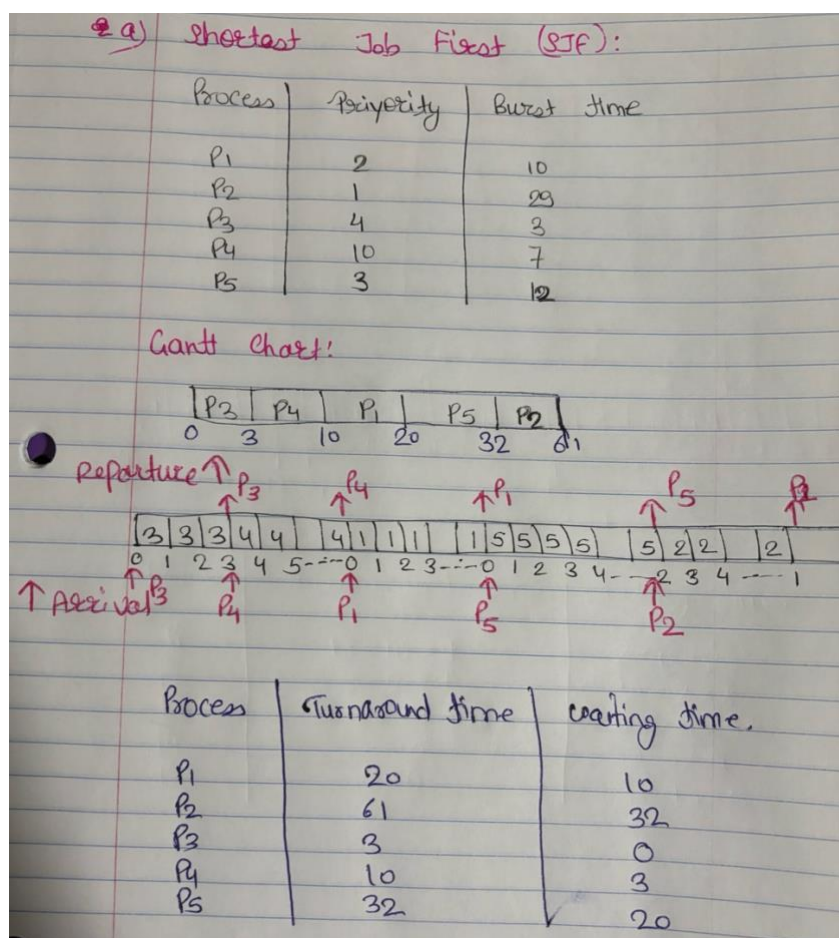 2 a) Shortest Job First (SJF):
Process Priyority Burst time
P1 2 10
P2 1 29
P3 4 3
P4 10 7
P5 3 12
Gantt Chart:
P3 P4 P1 P5 P2
0 3 10 20 32 61
Departure ↑ P3 P4 P1 P5 P2
3 3 3 4 4 4 1 1 1 1 5 5 5 5 5 2 2 2
0 1 2 3 4 5-----0 1 2 3-----0 1 2 3 4----2 3 4 ----- 1
↑ Arrival P3 P4 P1 P5 P2
Process Turnaround time waiting time.
P1 20 10
P2 61 32
P3 3 0
P4 10 3
P5 32 20